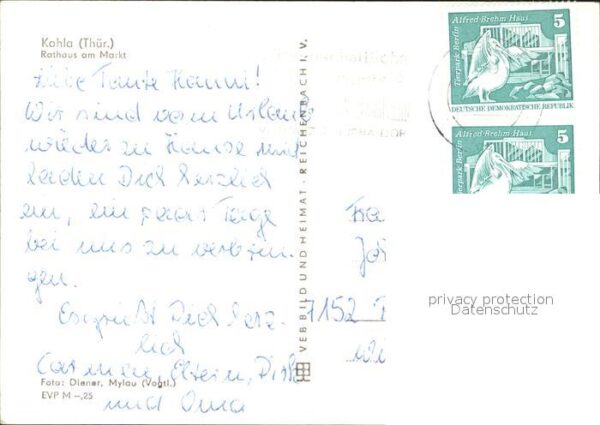 Kahla (Thür.)
Rathaus am Markt
Liebe Tante Hanni!
Wir sind vom Urlaub
wieder zu Hause und
laden Dich herzlich
ein, ein paar Tage
bei uns zu verbrin-
gen.
Es grüßt Dich herz-
lich
Carmen, Eltern, Dirk
und Oma
Foto: Diener, Mylau (Vogtl.)
EVP M –,25
VEB BILD UND HEIMAT · REICHENBACH I. V.
Alfred Brehm Haus
5
Tierpark Berlin
DEUTSCHE DEMOKRATISCHE REPUBLIK
Alfred Brehm Haus
5
Tierpark Berlin
7152
privacy protection
Datenschutz